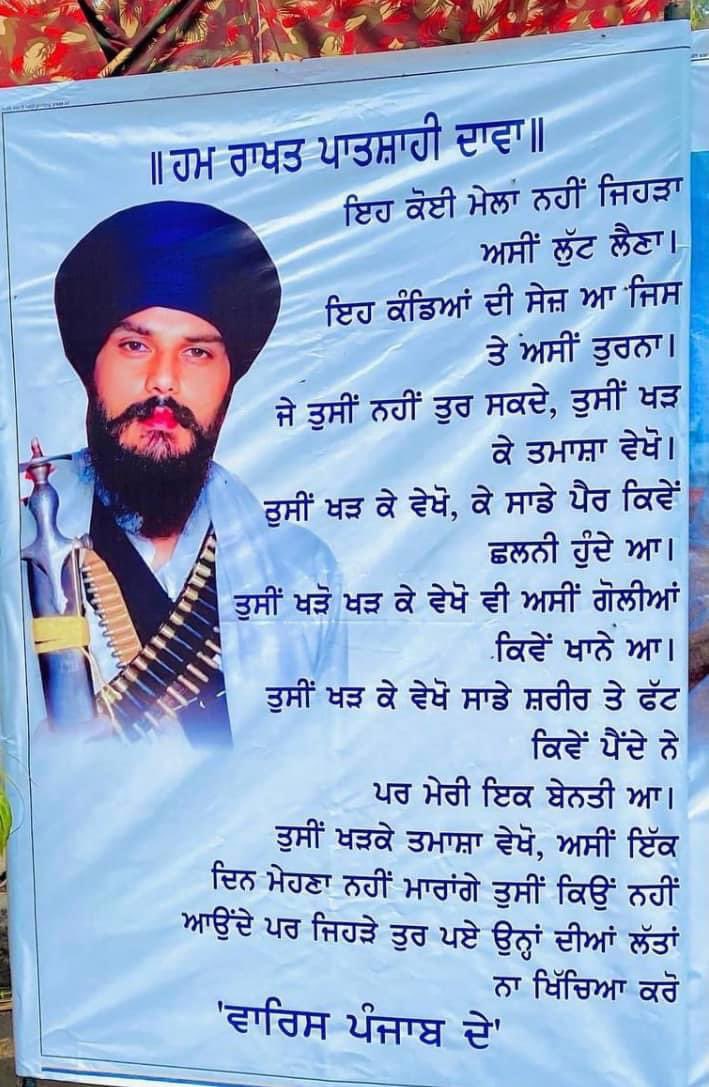 ॥ਹਮ ਰਾਖਤ ਪਾਤਸ਼ਾਹੀ ਦਾਵਾ॥
ਇਹ ਕੋਈ ਮੇਲਾ ਨਹੀਂ ਜਿਹੜਾ
ਅਸੀਂ ਲੁੱਟ ਲੈਣਾ।
ਇਹ ਕੰਡਿਆਂ ਦੀ ਸੇਜ਼ ਆ ਜਿਸ
ਤੇ ਅਸੀਂ ਤੁਰਨਾ।
ਜੇ ਤੁਸੀਂ ਨਹੀਂ ਤੁਰ ਸਕਦੇ, ਤੁਸੀਂ ਖੜ
ਕੇ ਤਮਾਸ਼ਾ ਵੇਖੋ।
ਤੁਸੀਂ ਖੜ ਕੇ ਵੇਖੋ, ਕੇ ਸਾਡੇ ਪੈਰ ਕਿਵੇਂ
ਛਲਨੀ ਹੁੰਦੇ ਆ।
ਤੁਸੀਂ ਖੜੋ ਖੜ ਕੇ ਵੇਖੋ ਵੀ ਅਸੀਂ ਗੋਲੀਆਂ
ਕਿਵੇਂ ਖਾਨੇ ਆ।
ਤੁਸੀਂ ਖੜ ਕੇ ਵੇਖੋ ਸਾਡੇ ਸ਼ਰੀਰ ਤੇ ਫੱਟ
ਕਿਵੇਂ ਪੈਂਦੇ ਨੇ
ਪਰ ਮੇਰੀ ਇਕ ਬੇਨਤੀ ਆ।
ਤੁਸੀਂ ਖੜਕੇ ਤਮਾਸ਼ਾ ਵੇਖੋ, ਅਸੀਂ ਇੱਕ
ਦਿਨ ਮੇਹਣਾ ਨਹੀਂ ਮਾਰਾਂਗੇ ਤੁਸੀਂ ਕਿਉਂ ਨਹੀਂ
ਆਉਂਦੇ ਪਰ ਜਿਹੜੇ ਤੁਰ ਪਏ ਉਨ੍ਹਾਂ ਦੀਆਂ ਲੱਤਾਂ
ਨਾ ਖਿੱਚਿਆ ਕਰੋ
'ਵਾਰਿਸ ਪੰਜਾਬ ਦੇ'